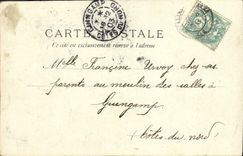 CARTE POSTALE
Ce côté est exclusivement réservé à l'adresse
GUINGAMP
Melle Francine Urvoy chez ses
parents au moulin des salles à
Guingamp
Côtes du nord